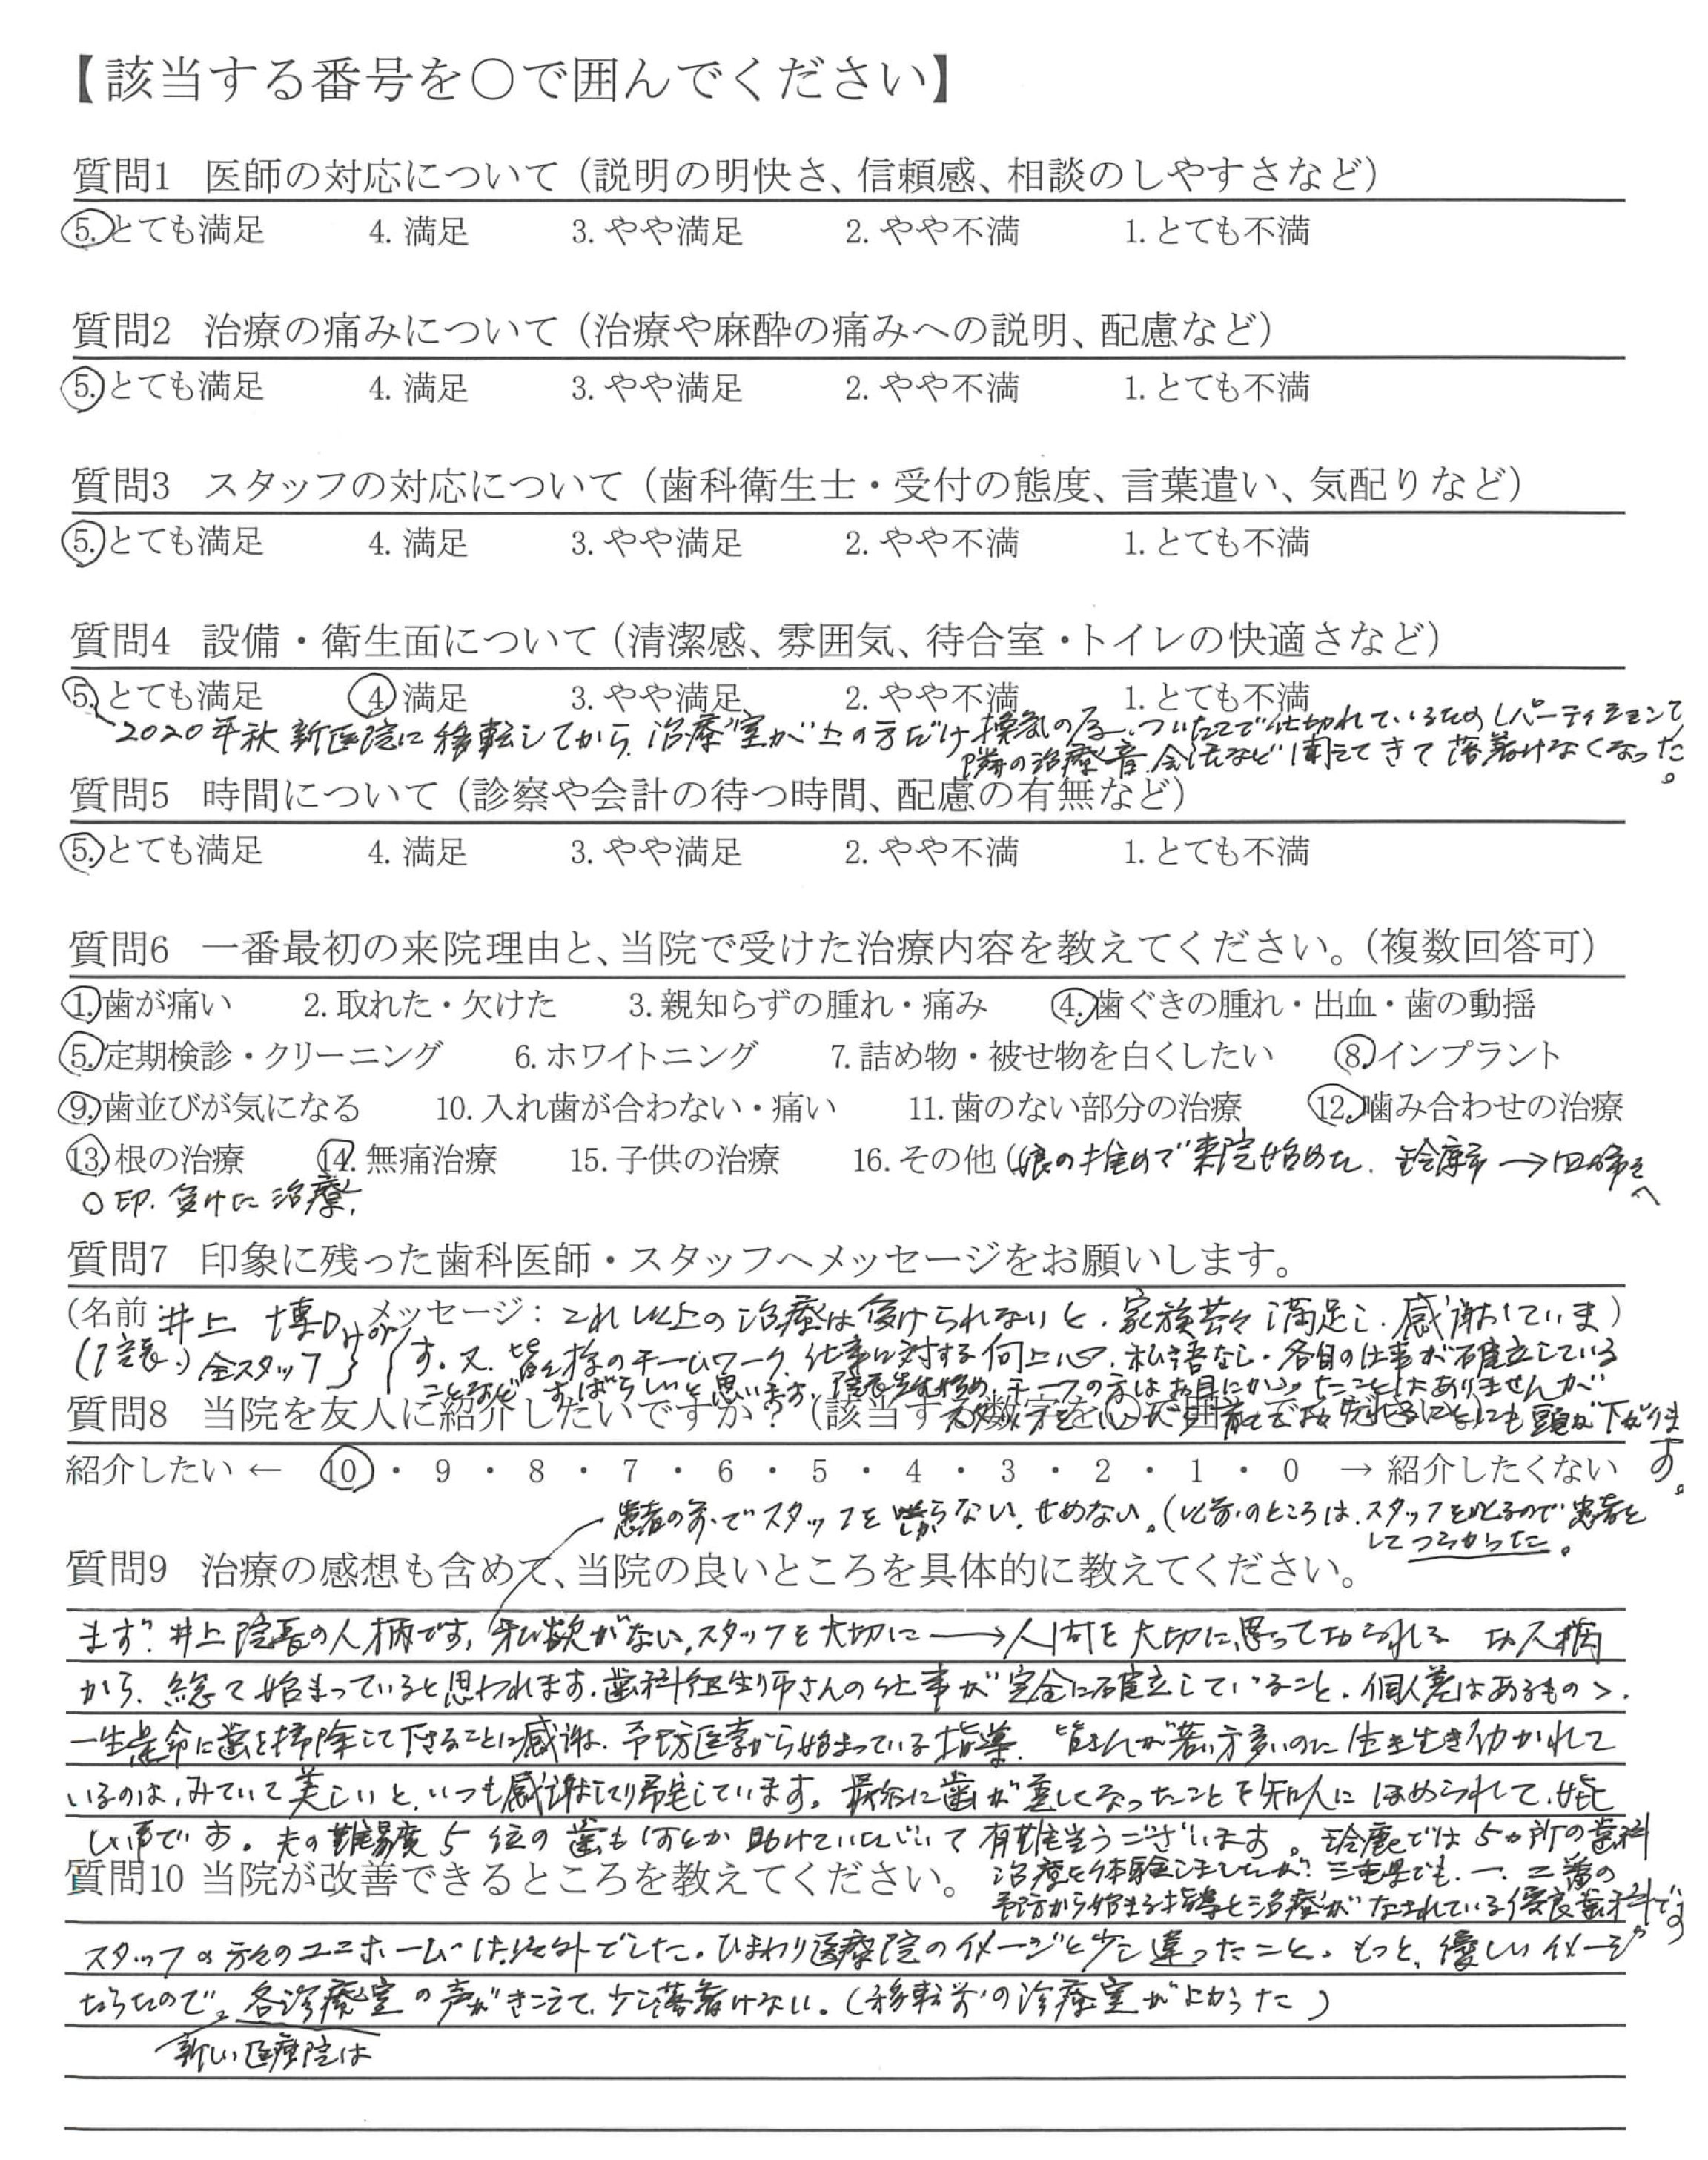 【該当する番号を○で囲んでください】
質問1 医師の対応について（説明の明快さ、信頼感、相談のしやすさなど）
5. とても満足 4. 満足 3. やや満足 2. やや不満 1. とても不満
質問2 治療の痛みについて（治療や麻酔の痛みへの説明、配慮など）
5. とても満足 4. 満足 3. やや満足 2. やや不満 1. とても不満
質問3 スタッフの対応について（歯科衛生士・受付の態度、言葉遣い、気配りなど）
5. とても満足 4. 満足 3. やや満足 2. やや不満 1. とても不満
質問4 設備・衛生面について（清潔感、雰囲気、待合室・トイレの快適さなど）
5. とても満足 4. 満足 3. やや満足 2. やや不満 1. とても不満
2020年秋 新医院に移転してから、治療室が上の方だけ換気の為、ついたてで仕切れている (パーティションで)
隣の治療音、会話など聞えてきて落着けなくなった。
質問5 時間について（診察や会計の待つ時間、配慮の有無など）
5. とても満足 4. 満足 3. やや満足 2. やや不満 1. とても不満
質問6 一番最初の来院理由と、当院で受けた治療内容を教えてください。（複数回答可）
1. 歯が痛い 2. 取れた・欠けた 3. 親知らずの腫れ・痛み 4. 歯ぐきの腫れ・出血・歯の動揺
5. 定期検診・クリーニング 6. ホワイトニング 7. 詰め物・被せ物を白くしたい 8. インプラント
9. 歯並びが気になる 10. 入れ歯が合わない・痛い 11. 歯のない部分の治療 12. 噛み合わせの治療
13. 根の治療 14. 無痛治療 15. 子供の治療 16. その他（娘の推めで来院始めた. 鈴鹿市→四日市へ
○印. 受けた治療.
質問7 印象に残った歯科医師・スタッフへメッセージをお願いします。
(名前 井上 博 メッセージ: これ以上の治療は受けられないと、家族共々満足し、感謝していま)
(院長) 全スタッフ す。又、皆々様のチームワーク、仕事に対する向上心、私語なし・各自の仕事が確立している
ことなど すばらしいと思います。院長先生始め、チーフの方はお目にかかったことはありませんが
質問8 当院を友人に紹介したいですか？（該当する数字を○で囲んでください） にも頭が下がります。
紹介したい ← 10 ・ 9 ・ 8 ・ 7 ・ 6 ・ 5 ・ 4 ・ 3 ・ 2 ・ 1 ・ 0 → 紹介したくない
患者の前でスタッフを叱らない、せめない。(以前のところは、スタッフを叱るので患者と
してつらかった。
質問9 治療の感想も含めて、当院の良いところを具体的に教えてください。
まず？井上院長の人柄です。私欲がない、スタッフを大切に→人間を大切に思っておられる お人柄
から、総て始まっていると思われます。歯科衛生師さんの仕事が完全に確立していること。個人差はあるものゝ、
一生懸命に歯を掃除して下さることに感謝、予防医学から始まっている指導、皆さんが若い方多いのに生き生き働かれて
いるのは、みていて美しいと、いつも感謝して帰宅しています。最初に歯が美しくなったことを知人にほめられて、嬉
しい声です。夫の難易度5位の歯も何とか助けていただいて有難当うございます。鈴鹿では5ヵ所の歯科
治療を体験しましたが？三重県でも、一、二番の
予防から始まる指導と治療がなされている優良歯科です
質問10 当院が改善できるところを教えてください。
スタッフの方々のユニホームは意外でした。ひまわり医療院のイメージと少し違ったこと。もっと、優しいイメージ
だったので。各診療室の声がきこえて、少し落着けない。(移転前の診療室がよかった)
新しい医療院は